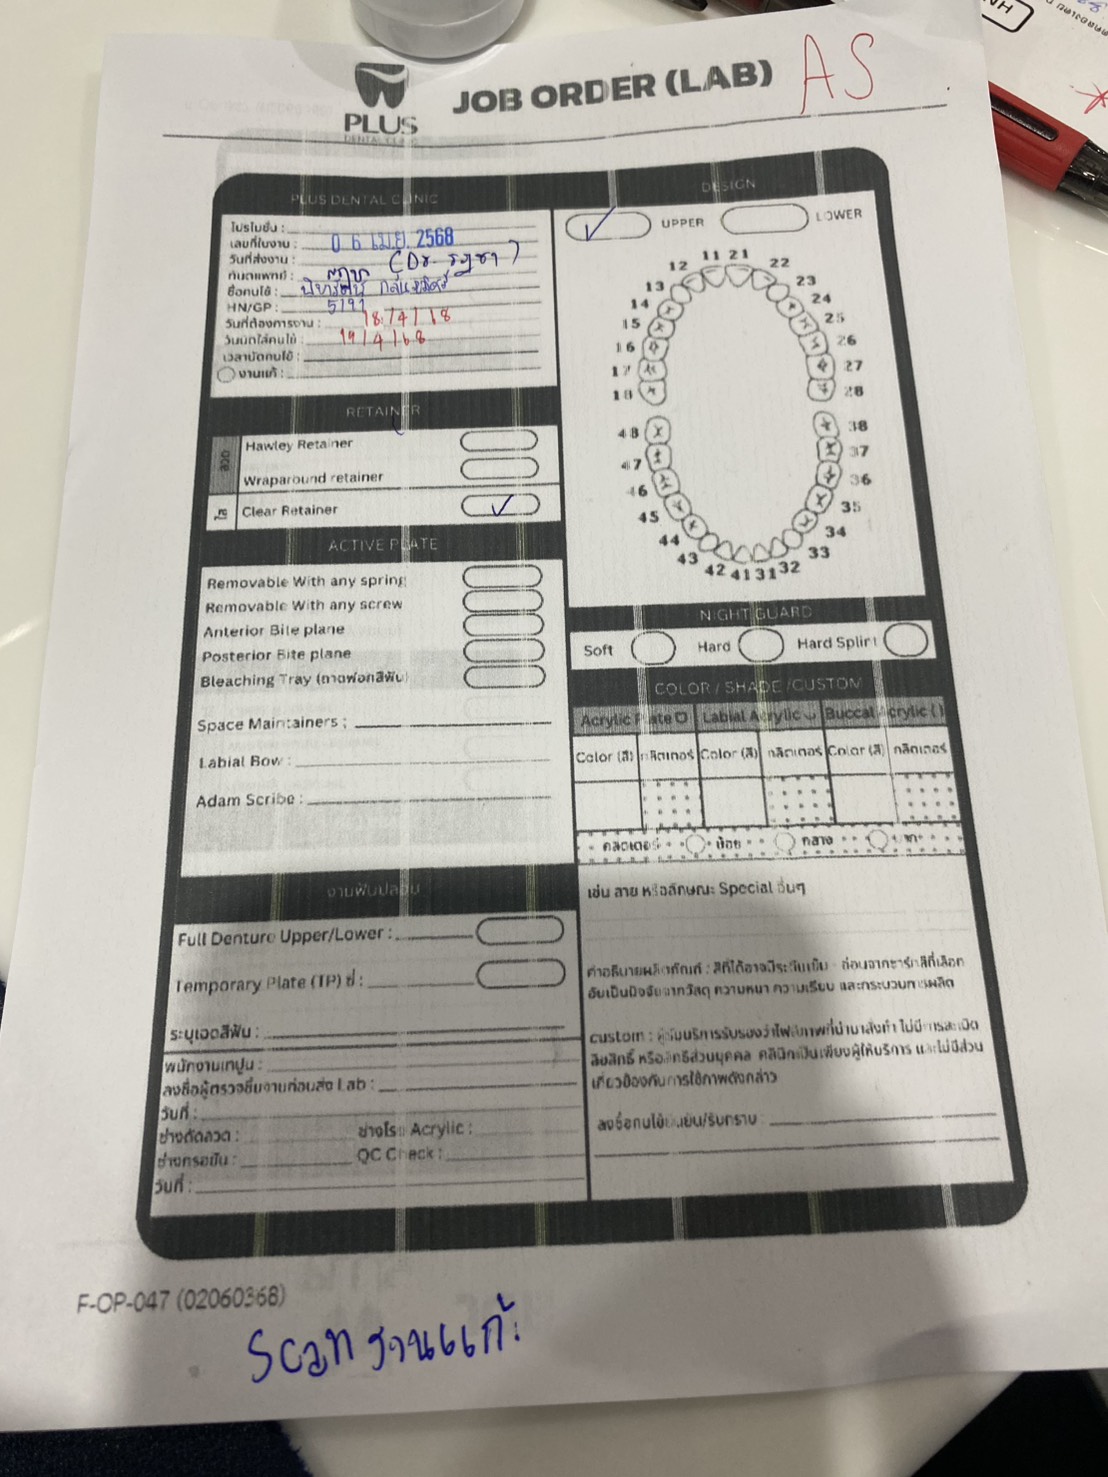 PLUS
DENTAL CLINIC
JOB ORDER (LAB)
AS
PLUS DENTAL CLINIC
โปรโมชั่น :
เลขที่ใบงาน :
วันที่ส่งงาน : 0 6 เม.ย. 2568
ทันตแพทย์ : (Dr.
ชื่อคนไข้ :
HN/GP : 5191
วันที่ต้องการงาน : 18/4/
วันนัดใส่คนไข้ : 19/4/68
เวลานัดคนไข้ :
งานแก้ :
RETAINER
ลวด
Hawley Retainer
Wraparound retainer
ใส
Clear Retainer
ACTIVE PLATE
Removable With any spring
Removable With any screw
Anterior Bite plane
Posterior Bite plane
Bleaching Tray (ถาดฟอกสีฟัน)
Space Maintainers :
Labial Bow :
Adam Scribe :
งานฟันปลอม
Full Denture Upper/Lower :
Temporary Plate (TP) ซี่ :
ระบุเฉดสีฟัน :
พนักงานเทปูน :
ลงชื่อผู้ตรวจชิ้นงานก่อนส่ง Lab :
วันที่ :
ช่างดัดลวด :
ช่างโรย Acrylic :
ช่างกรอขัด :
QC Check :
วันที่ :
DESIGN
UPPER
LOWER
11 21
12 22
13 23
14 24
15 25
16 26
17 27
18 28
48 38
47 37
46 36
45 35
44 34
43 33
42 41 31 32
NIGHT GUARD
Soft
Hard
Hard Splint
COLOR / SHADE /CUSTOM
Acrylic Plate O
Labial Acrylic ◡
Buccal Acrylic ( )
Color (สี) กลิตเตอร์ Color (สี) กลิตเตอร์ Color (สี) กลิตเตอร์
กลิตเตอร์
น้อย
กลาง
มาก
เช่น ลาย หรือลักษณะ Special อื่นๆ
คำอธิบายผลิตภัณฑ์ : สีที่ได้อาจมีระดับเข้ม - อ่อนจากชาร์ทสีที่เลือก
อันเป็นปัจจัยจากวัสดุ ความหนา ความเรียบ และกระบวนการผลิต
custom : ผู้รับบริการรับรองว่าไฟล์ภาพที่นำมาสั่งทำ ไม่มีการละเมิด
ลิขสิทธิ์ หรือสิทธิส่วนบุคคล คลินิกเป็นเพียงผู้ให้บริการ และไม่มีส่วน
เกี่ยวข้องกับการใช้ภาพดังกล่าว
ลงชื่อคนไข้ยืนยัน/รับทราบ :
F-OP-047 (02060368)
Scan งานแก้